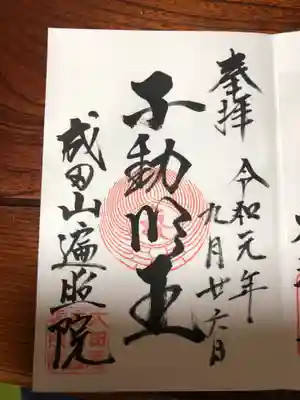 奉拝
令和元年
九月廿六日
不動明王
成田山遍照院